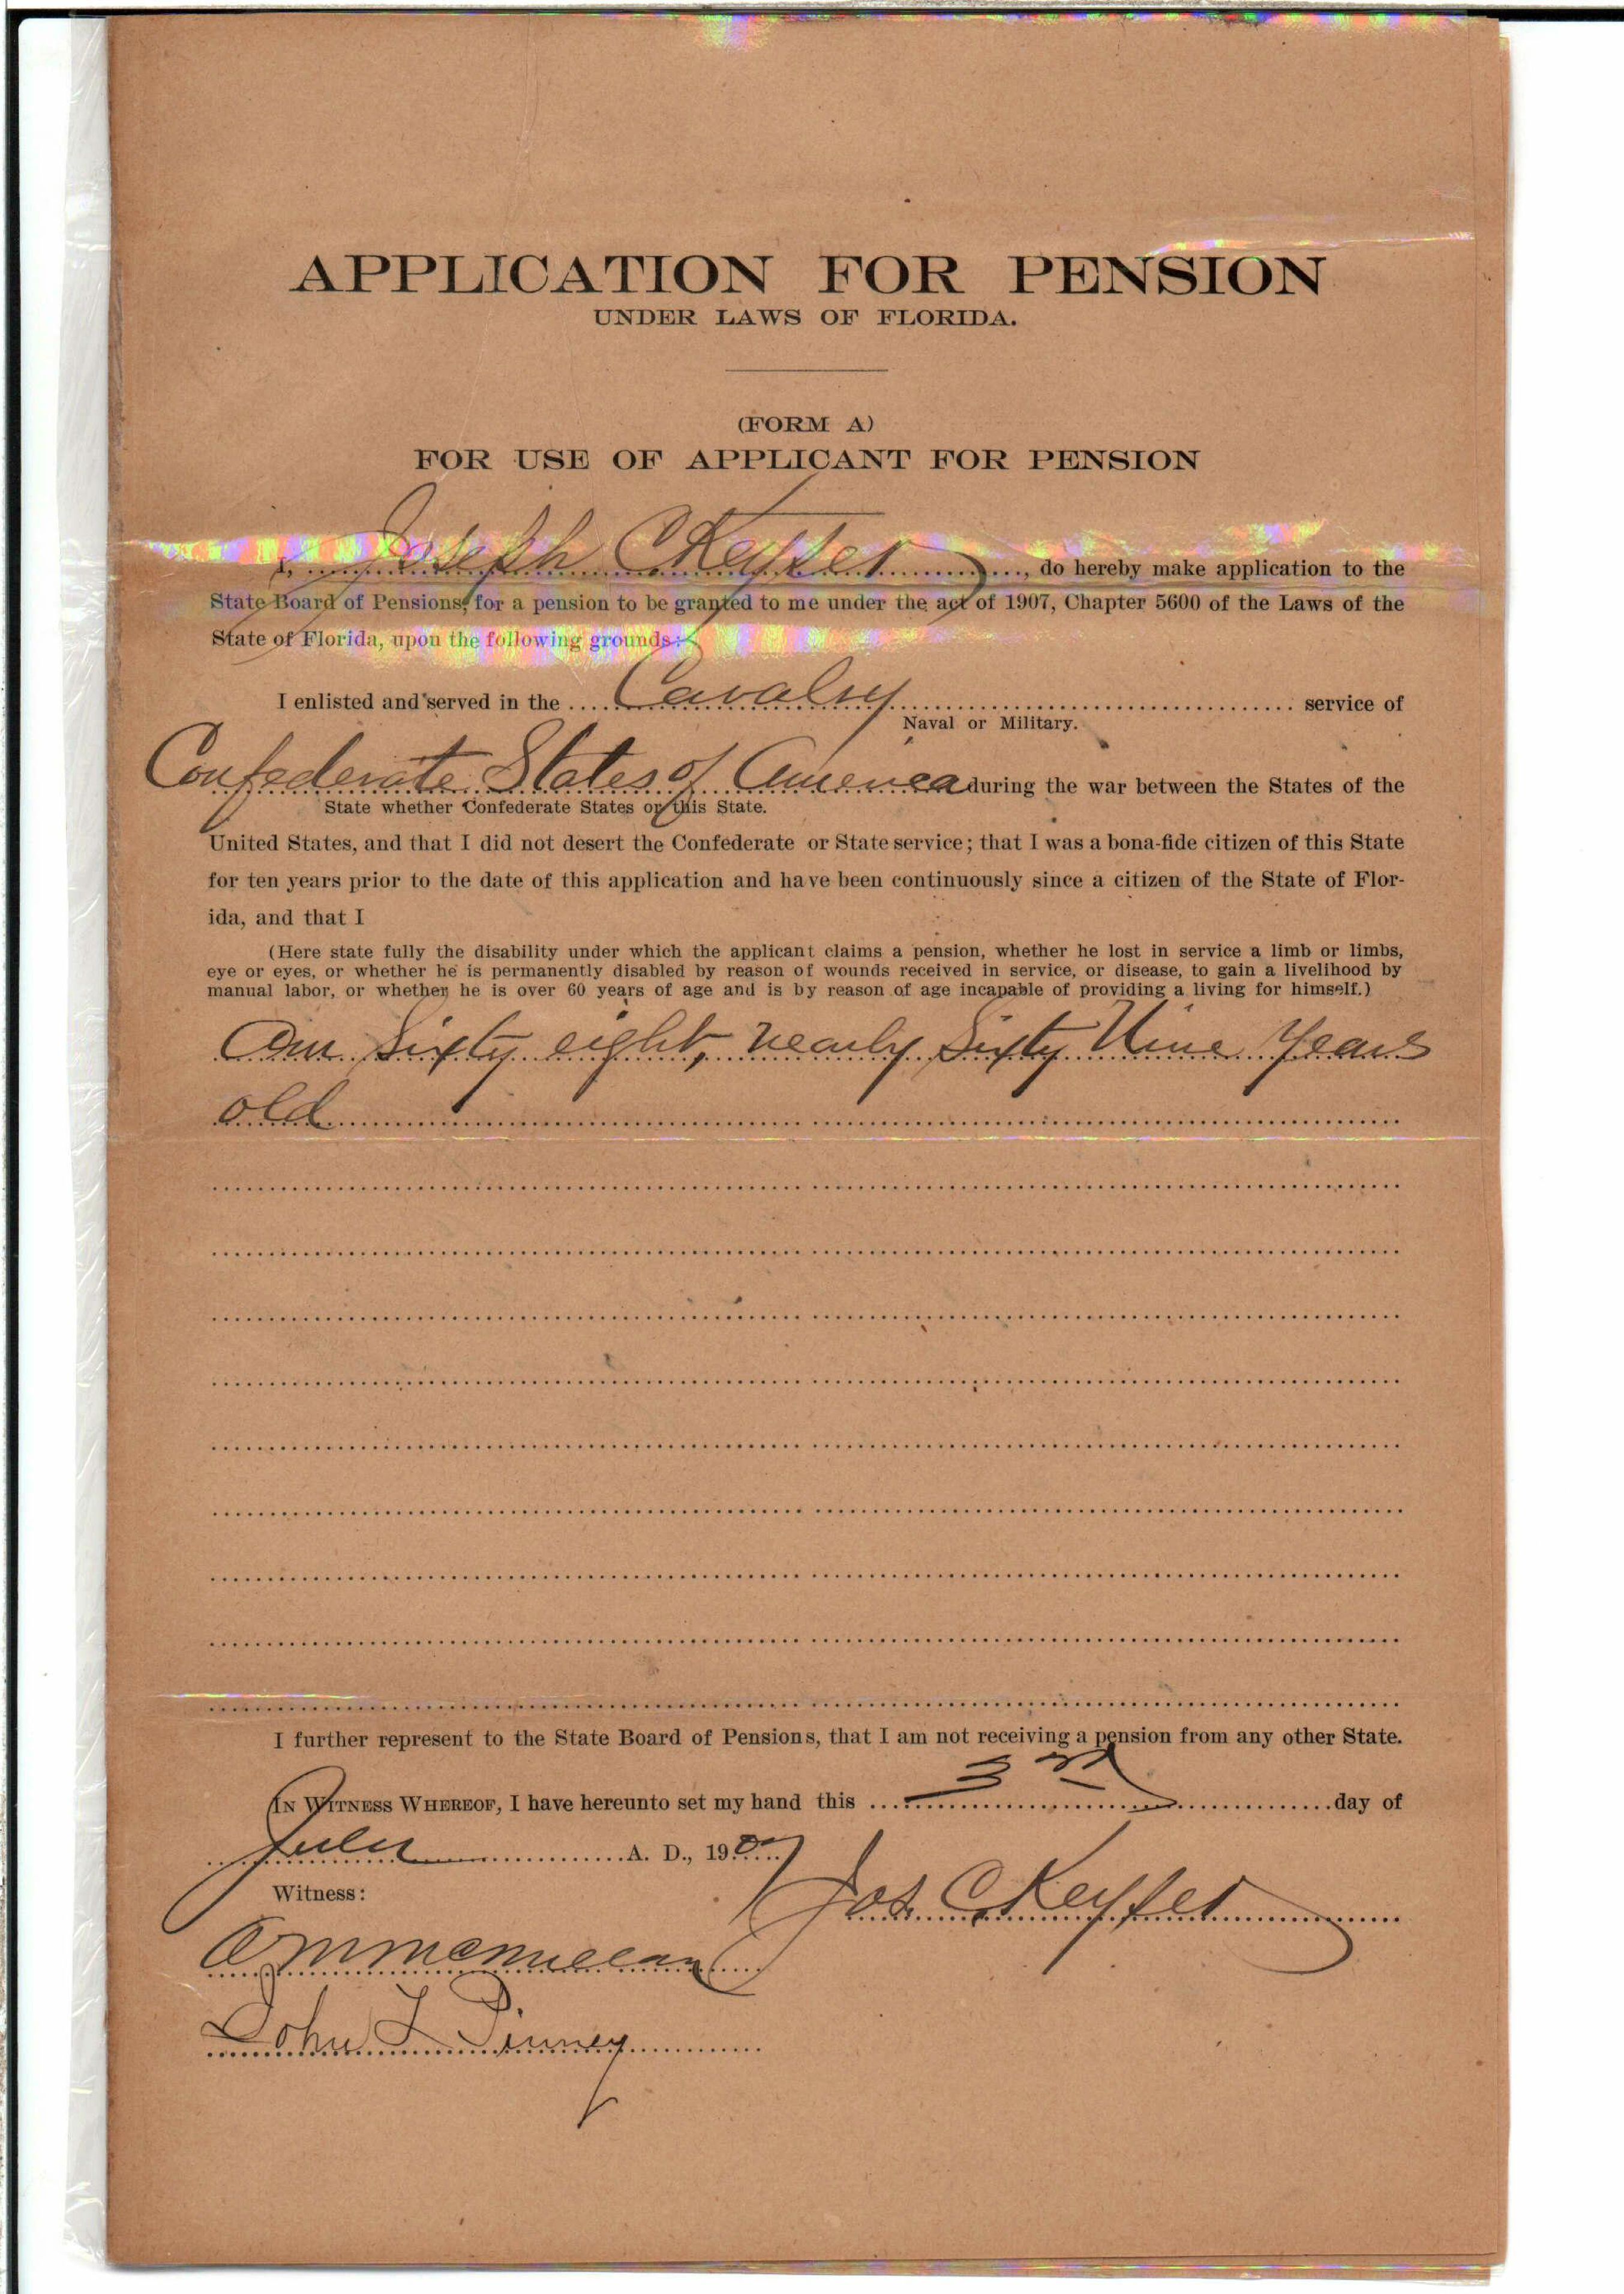 APPLICATION FOR PENSION
UNDER LAWS OF FLORIDA.
(FORM A)
FOR USE OF APPLICANT FOR PENSION
I, Joseph C Keyser, do hereby make application to the
State Board of Pensions, for a pension to be granted to me under the act of 1907, Chapter 5600 of the Laws of the
State of Florida, upon the following grounds:
I enlisted and served in the Cavalry service of
Naval or Military.
Confederate States of America during the war between the States of the
State whether Confederate States or this State.
United States, and that I did not desert the Confederate or State service; that I was a bona-fide citizen of this State
for ten years prior to the date of this application and have been continuously since a citizen of the State of Flor-
ida, and that I
(Here state fully the disability under which the applicant claims a pension, whether he lost in service a limb or limbs,
eye or eyes, or whether he is permanently disabled by reason of wounds received in service, or disease, to gain a livelihood by
manual labor, or whether he is over 60 years of age and is by reason of age incapable of providing a living for himself.)
Am Sixty eight, nearly Sixty Nine Years
old
I further represent to the State Board of Pensions, that I am not receiving a pension from any other State.
IN WITNESS WHEREOF, I have hereunto set my hand this 3rd day of
July A. D., 1907
Witness:
Jos. C Keyser
John L Pinney